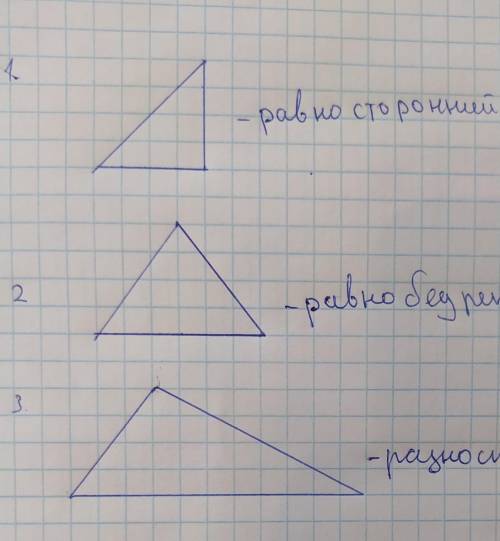 1.
- равно сторонний
2
- равно бедрен
3.
- разнос